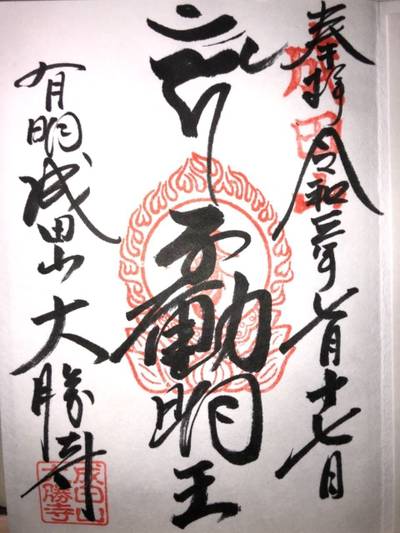 奉拝 令和三年七月十七日
不動明王
有明成田山 大勝寺
成田山
大勝寺